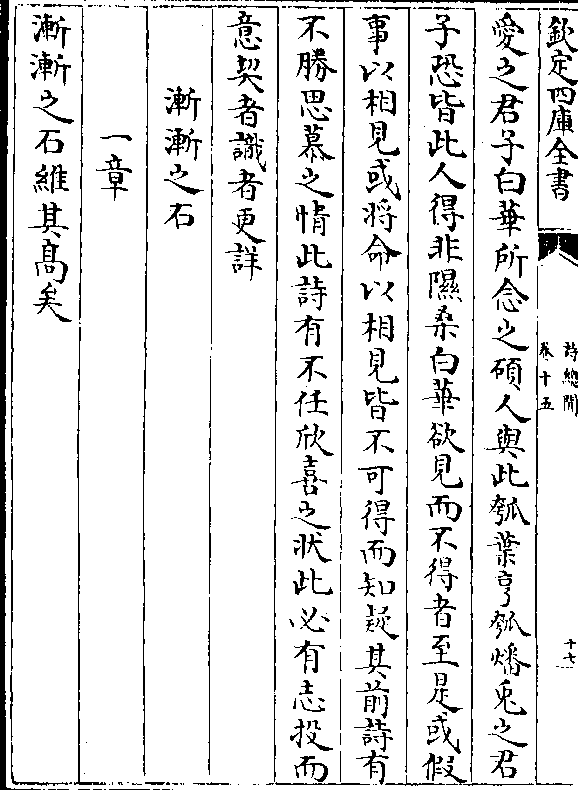 欽定四庫全書
詩總聞
卷十五
十七
愛之君子白華所念之碩人與此瓠葉亨瓠燔兎之君
子恐皆此人得非隰桑白華欲見而不得者至是或假
事以相見或將命以相見皆不可得而知疑其前詩有
不勝思慕之情此詩有不任欣喜之狀此必有志投而
意契者識者更詳
漸漸之石
一章
漸漸之石維其髙矣